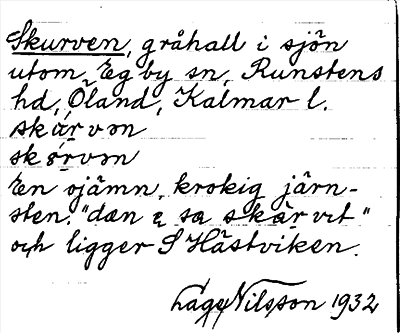 Skurven, gråhall i sjön
utom, Egby sn, Runstens
hd, Öland, Kalmar l.
skärvən
skörvən
En ojämn, krokig järn-
sten, "dæn ə sa skärvıt"
och ligger S Hästviken.
Lage Nilsson 1932